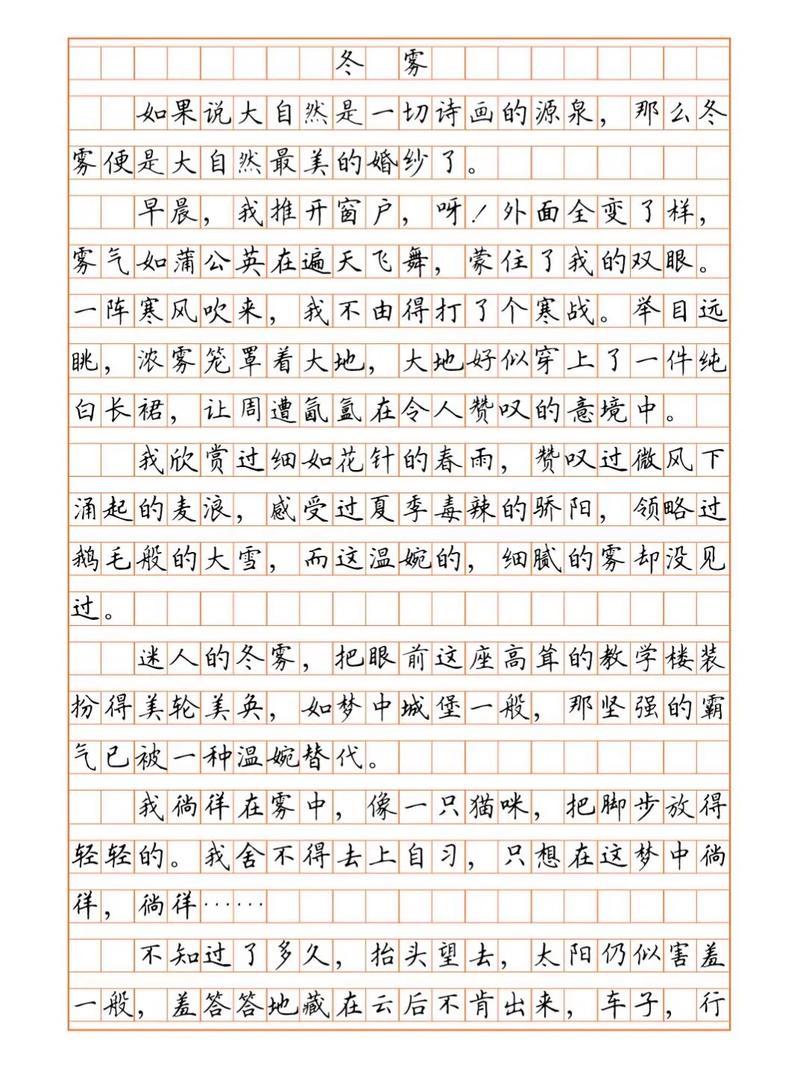 冬雾
如果说大自然是一切诗画的源泉，那么冬
雾便是大自然最美的婚纱了。
早晨，我推开窗户，呀！外面全变了样，
雾气如蒲公英在遍天飞舞，蒙住了我的双眼。
一阵寒风吹来，我不由得打了个寒战。举目远
眺，浓雾笼罩着大地，大地好似穿上了一件纯
白长裙，让周遭氤氲在令人赞叹的意境中。
我欣赏过细如花针的春雨，赞叹过微风下
涌起的麦浪，感受过夏季毒辣的骄阳，领略过
鹅毛般的大雪，而这温婉的，细腻的雾却没见
过。
迷人的冬雾，把眼前这座高耸的教学楼装
扮得美轮美奂，如梦中城堡一般，那坚强的霸
气已被一种温婉替代。
我徜徉在雾中，像一只猫咪，把脚步放得
轻轻的。我舍不得去上自习，只想在这梦中徜
徉，徜徉……
不知过了多久，抬头望去，太阳仍似害羞
一般，羞答答地藏在云后不肯出来，车子，行